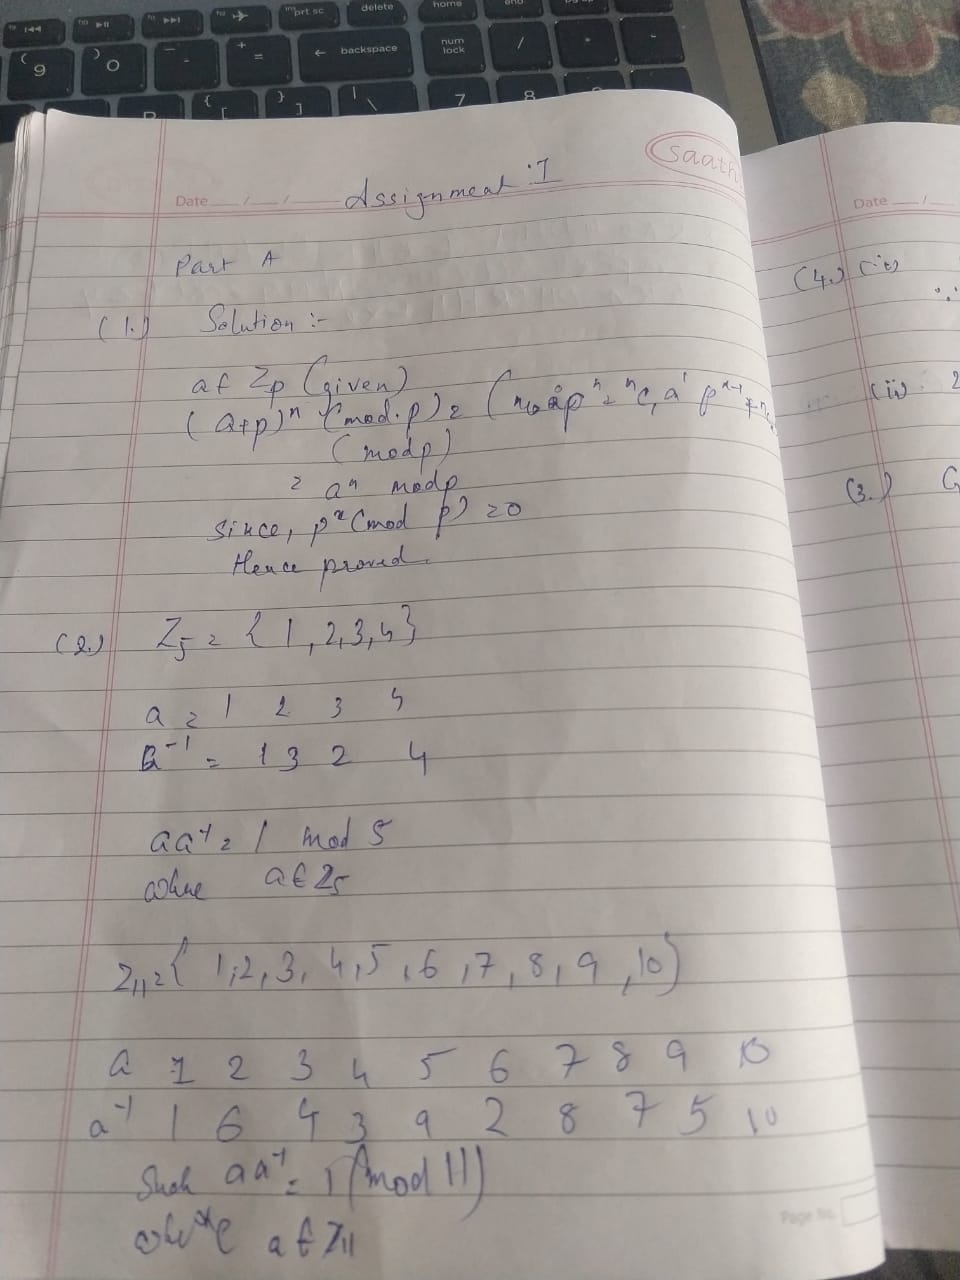 prt sc
delete
home
end
( 9
) 0
-
+ =
← backspace
num lock
/
*
-
{ [
} ]
| \
7
8
Saath
Date __/__/__
Assignment : I
Part A
(1.) Solution :-
a ∈ Zp (given)
(a+p)ⁿ (mod p) =
(mod p)
= aⁿ mod p
since, pⁿ (mod p) = 0
Hence proved
(2.) Z₅ = { 1, 2, 3, 4 }
a = 1 2 3 4
a⁻¹ = 1 3 2 4
aa⁻¹ = 1 mod 5
where a ∈ Z₅
Z₁₁ = { 1, 2, 3, 4, 5, 6, 7, 8, 9, 10 }
a 1 2 3 4 5 6 7 8 9 10
a⁻¹ 1 6 4 3 9 2 8 7 5 10
Such aa⁻¹ = 1 (mod 11)
where a ∈ Z₁₁
Page No.
Date __/__
(4.) (i)
∴
(ii)
(3.) G